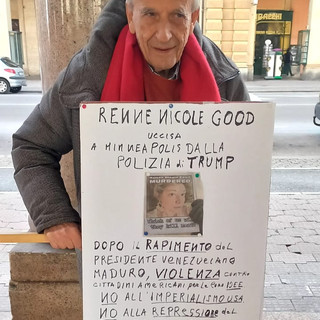 RENNE NICOLE GOOD
UCCISA
A MINNEAPOLIS DALLA
POLIZIA di TRUMP
MURDERED
DOPO il RAPIMENTO del
PRESIDENTE VENEZUELANO
MADURO, VIOLENZA contro
CITTADINI AMERICANI per le loro IDEE
NO ALL'IMPERIALISMO USA
NO ALLA REPRESSIONE del